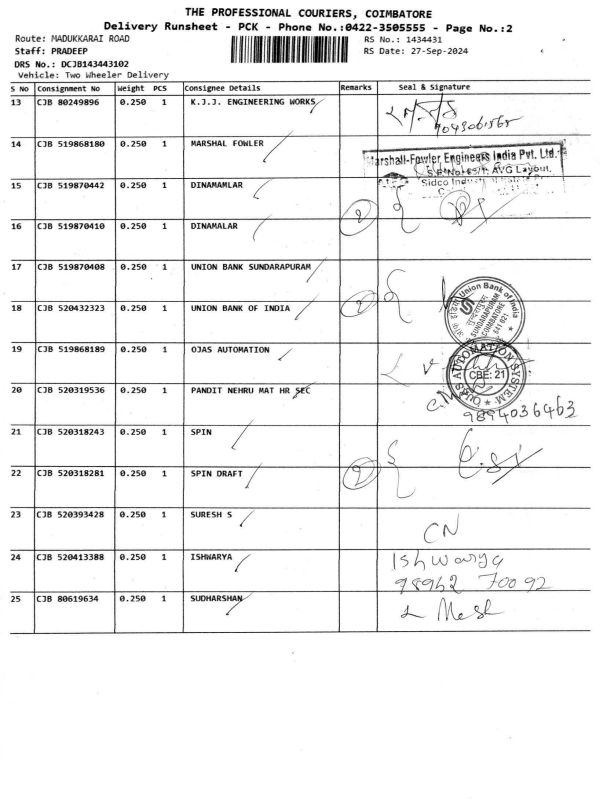 THE PROFESSIONAL COURIERS, COIMBATORE
Delivery Runsheet - PCK - Phone No.:0422-3505555 - Page No.:2
Route: MADUKKARAI ROAD RS No.: 1434431
Staff: PRADEEP RS Date: 27-Sep-2024
DRS No.: DCJB143443102
Vehicle: Two Wheeler Delivery
S No Consignment No Weight PCS Consignee Details Remarks Seal & Signature
13 CJB 80249896 0.250 1 K.J.J. ENGINEERING WORKS
14 CJB 519868180 0.250 1 MARSHAL FOWLER
Marshall-Fowler Engineers India Pvt. Ltd.
AVG Layout,
15 CJB 519870442 0.250 1 DINAMAMLAR
Sidco
2
16 CJB 519870410 0.250 1 DINAMALAR
17 CJB 519870408 0.250 1 UNION BANK SUNDARAPURAM
2 Union Bank of India
SUNDARAPURAM
COIMBATORE
641 021
18 CJB 520432323 0.250 1 UNION BANK OF INDIA
19 CJB 519868189 0.250 1 OJAS AUTOMATION
OJAS AUTOMATION SYSTEM
CBE: 21
20 CJB 520319536 0.250 1 PANDIT NEHRU MAT HR SEC
9894036463
21 CJB 520318243 0.250 1 SPIN
2
22 CJB 520318281 0.250 1 SPIN DRAFT
23 CJB 520393428 0.250 1 SURESH S
CN
24 CJB 520413388 0.250 1 ISHWARYA
Ishwarya
98942 70092
25 CJB 80619634 0.250 1 SUDHARSHAN